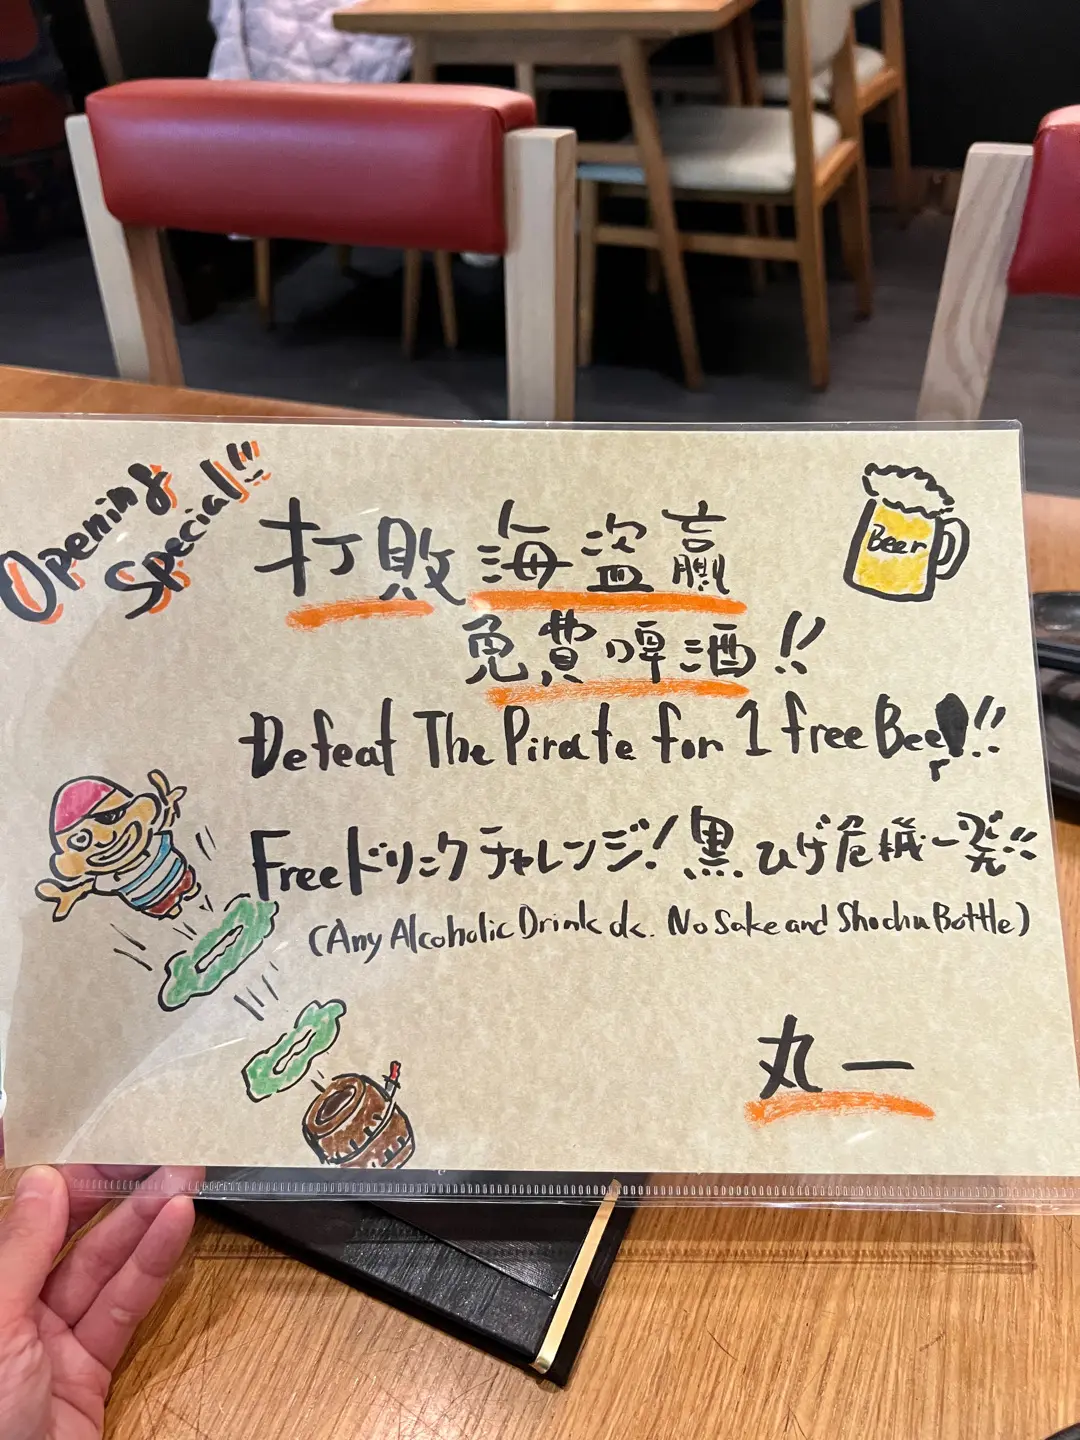 Opening
Special!!
打敗海盜贏
免費啤酒!!
Beer
Defeat The Pirate for 1 free Beer!!!
Freeドリンクチャレンジ! 黒ひげ危機一発!!
(Any Alcoholic Drink ok. No Sake and Shochu Bottle)
丸一